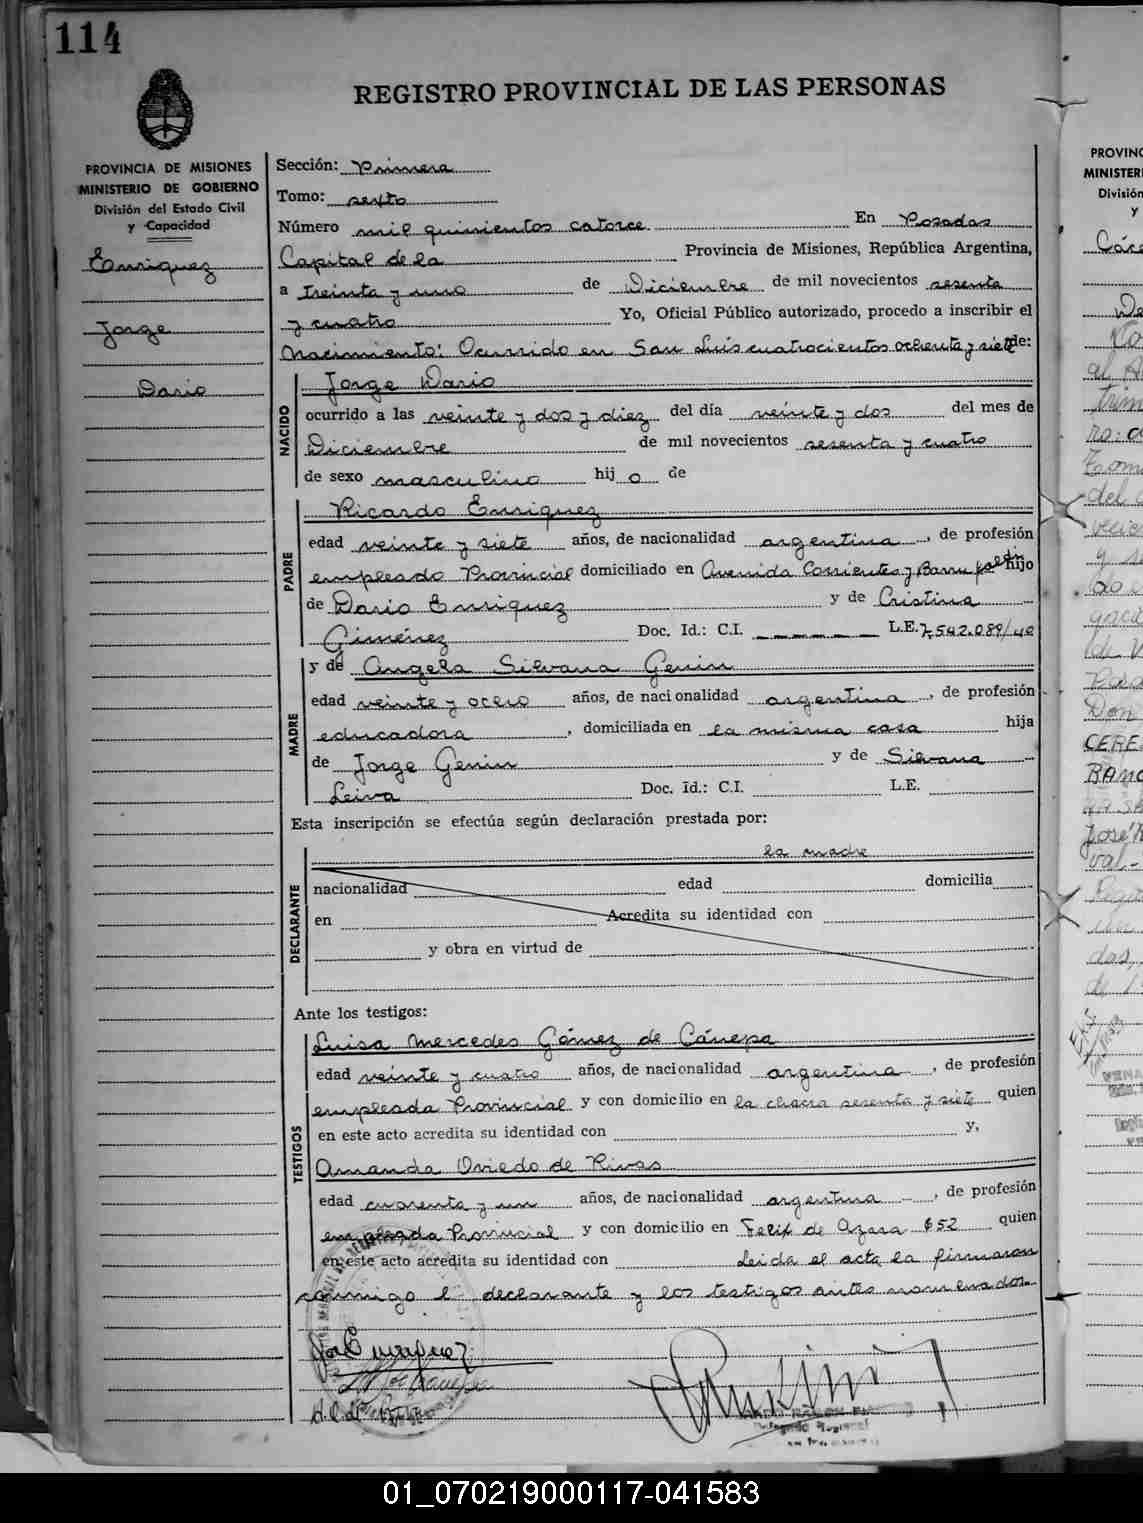 114
REGISTRO PROVINCIAL DE LAS PERSONAS
PROVINCIA DE MISIONES
MINISTERIO DE GOBIERNO
División del Estado Civil
y Capacidad
Enriquez
Jorge
Dario
Sección: Primera
Tomo: sexto
Número mil quinientos catorce En Posadas
Capital de la Provincia de Misiones, República Argentina,
a treinta y uno de Diciembre de mil novecientos sesenta
y cuatro Yo, Oficial Público autorizado, procedo a inscribir el
Nacimiento: Ocurrido en San Luis cuatrocientos ochenta y siete de:
NACIDO
Jorge Dario
ocurrido a las veinte y dos y diez del día veinte y dos del mes de
Diciembre de mil novecientos sesenta y cuatro
de sexo masculino hij o de
PADRE
Ricardo Enriquez
edad veinte y siete años, de nacionalidad argentina, de profesión
empleado Provincial domiciliado en Avenida Corrientes y hijo
de Dario Enriquez y de Cristina
Giménez Doc. Id.: C.I. L.E. 7.542.089/40
MADRE
y de Angela Silvana Genin
edad veinte y ocho años, de nacionalidad argentina, de profesión
educadora, domiciliada en la misma casa hija
de Jorge Genin y de Silvana
Leiva Doc. Id.: C.I. L.E.
Esta inscripción se efectúa según declaración prestada por:
DECLARANTE
la madre
nacionalidad edad domicilia
en Acredita su identidad con
y obra en virtud de
Ante los testigos:
TESTIGOS
Luisa Mercedes Gómez de Cánepa
edad veinte y cuatro años, de nacionalidad argentina, de profesión
empleada Provincial y con domicilio en la chacra sesenta y siete quien
en este acto acredita su identidad con y,
Amanda Oviedo de Rivas
edad cuarenta y un años, de nacionalidad argentina, de profesión
empleada Provincial y con domicilio en Felix de Azara 652 quien
en este acto acredita su identidad con Leida el acta la firmaron
conmigo l declarante y los testigos antes nombrados.
01_070219000117-041583